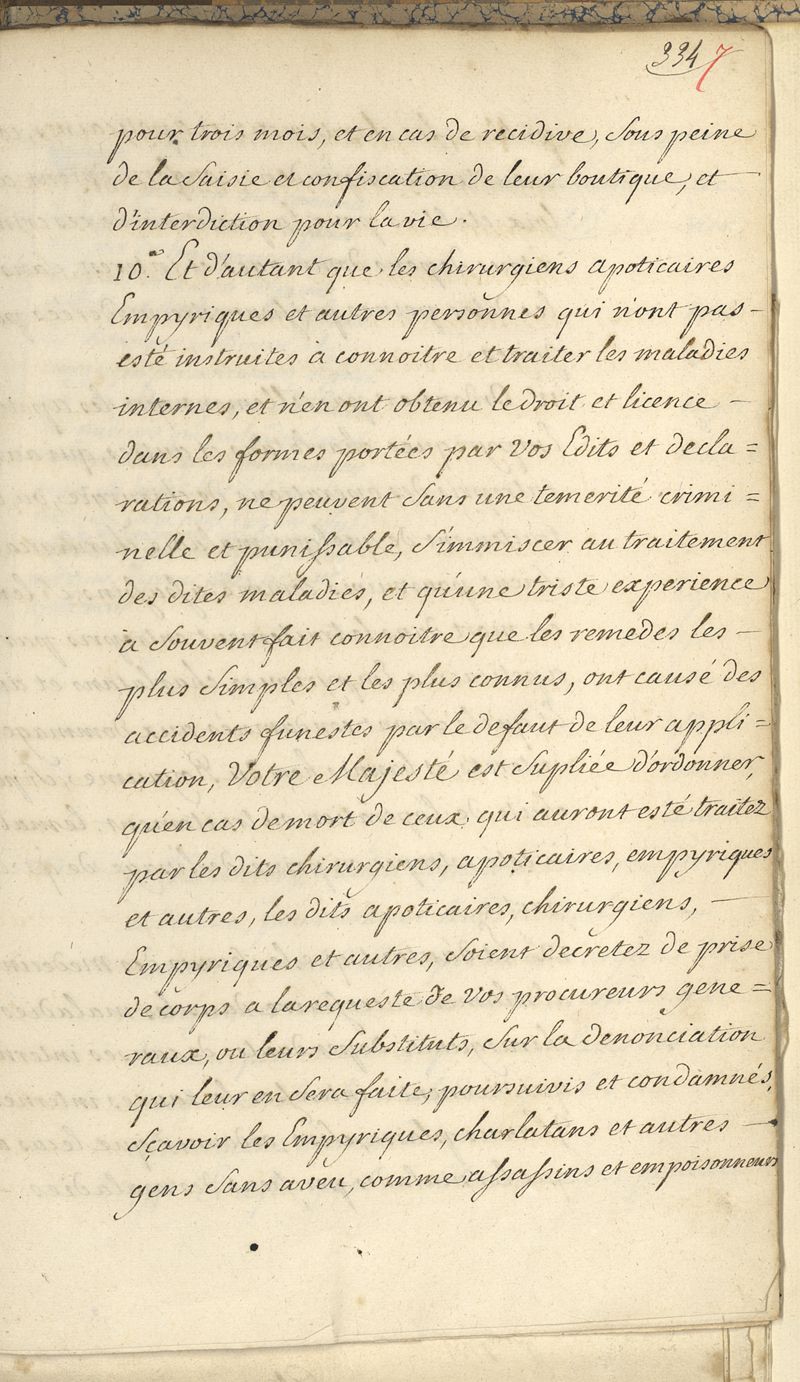 334 7
pour trois mois, et en cas de recidive, Sous peine
de la Saisie et confiscation de leur boutique, et —
d'interdiction pour la vie.
10.° Et d'autant que les chirurgiens apoticaires
Empyriques et autres personnes qui n'ont pas —
esté instruites a connoitre et traiter les maladies
internes, et n'en ont obtenu le droit et licence —
dans les formes portées par Vos Edits et decla=
rations, ne peuvent Sans une temerité crimi=
nelle et punissable, S'immiscer au traitement
des dites maladies, et qu'une triste experience
a Souvent fait connoitre que les remedes les —
plus Simples et les plus connus, ont causé des
accidents funestes par le defaut de leur appli=
cation, Votre Majesté est Supliée d'ordonner,
qu'en cas de mort de ceux qui auront esté traitez
par les dits chirurgiens, apoticaires, empyriques
et autres, les dits apoticaires, chirurgiens, —
Empyriques et autres, Soient decretez de prise
de corps a la requeste de Vos procureurs gene=
raux, ou leurs Substituts, Sur la denonciation
qui leur en Sera faite, poursuivis et condamnés,
Sçavoir les Empyriques, charlatans et autres —
gens Sans aveu, comme assassins et empoisonneurs